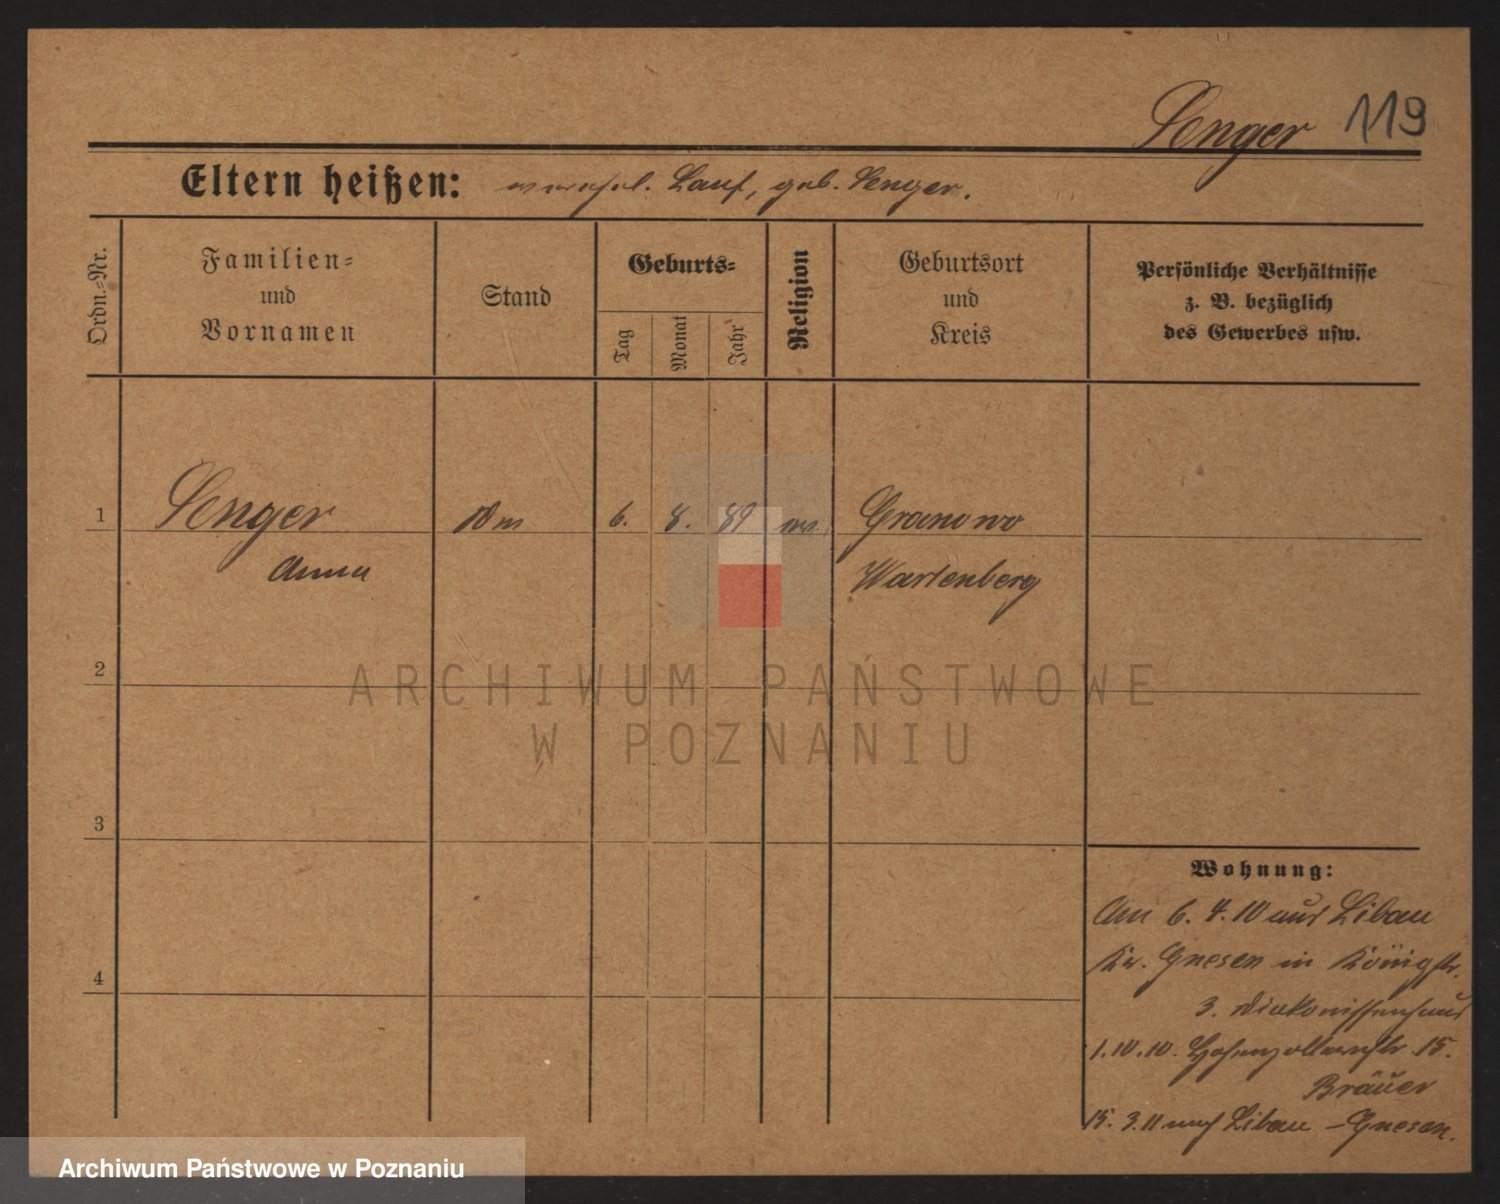 Senger 119
Eltern heißen: unehel. Lauf, geb. Senger.
Ordn.-Nr.
Familien-
und
Vornamen
Stand
Geburts-
Tag
Monat
Jahr
Religion
Geburtsort
und
Kreis
Persönliche Verhältnisse
z. B. bezüglich
des Gewerbes usw.
1 Senger 6. 8. 89 Granowo
Anna Wartenberg
2
3
4
Wohnung:
Am 6. 4. 10 aus Libau
Kr. Gnesen in Königstr.
3. Diakonissenhaus
1.10.10. Hohenzollernstr. 15.
Bräuer
15. 3.11 nach Libau - Gnesen.
ARCHIWUM PAŃSTWOWE
W POZNANIU
Archiwum Państwowe w Poznaniu